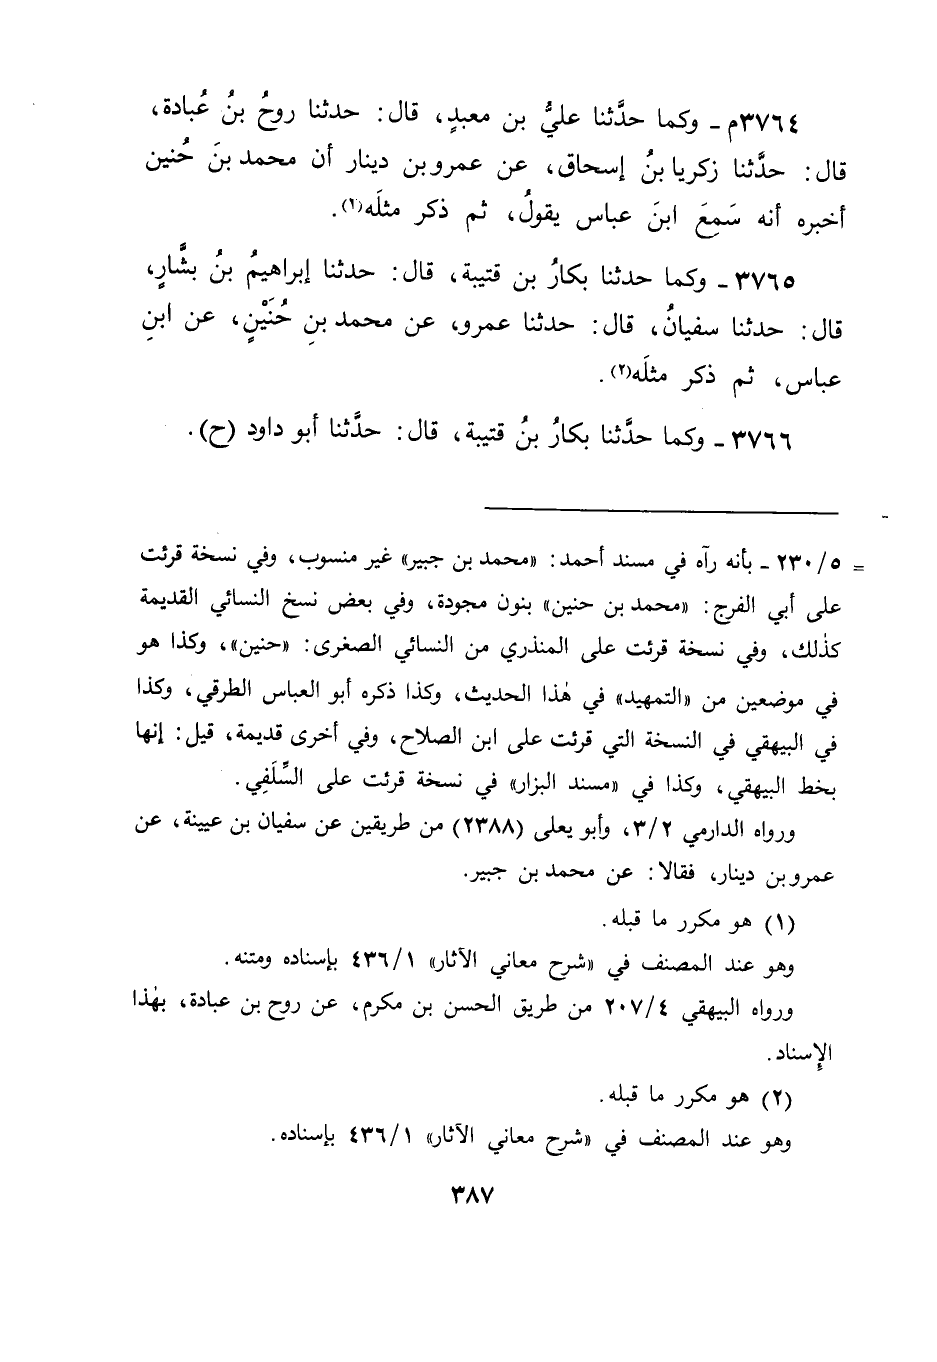 ٣٧٦٤م ـ وكما حدَّثنا عليُّ بن معبدٍ، قال: حدثنا روحُ بنُ عُبادة،
قال: حدَّثنا زكريا بنُ إسحاق، عن عمرو بن دينار أن محمد بنَ حُنين
أخبره أنه سَمِعَ ابنَ عباس يقولُ، ثم ذكر مثلَه(١).
٣٧٦٥ ـ وكما حدثنا بكارُ بن قتيبة، قال: حدثنا إبراهيمُ بنُ بشَّارٍ،
قال: حدثنا سفيانُ، قال: حدثنا عمرو، عن محمد بنِ حُنَيْنٍ، عن ابنِ
عباس، ثم ذكر مثلَه(٢).
٣٧٦٦ ـ وكما حدَّثنا بكارُ بنُ قتيبة، قال: حدَّثنا أبو داود (ح).
= ٢٣٠/٥ ـ بأنه رآه في مسند أحمد: «محمد بن جبير» غير منسوب، وفي نسخة قرئت
على أبي الفرج: «محمد بن حنين» بنون مجودة، وفي بعض نسخ النسائي القديمة
كذلك، وفي نسخة قرئت على المنذري من النسائي الصغرى: «حنين»، وكذا هو
في موضعين من «التمهيد» في هٰذا الحديث، وكذا ذكره أبو العباس الطرقي، وكذا
في البيهقي في النسخة التي قرئت على ابن الصلاح، وفي أخرى قديمة، قيل: إنها
بخط البيهقي، وكذا في «مسند البزار» في نسخة قرئت على السِّلَفِي.
ورواه الدارمي ٣/٢، وأبو يعلى (٢٣٨٨) من طريقين عن سفيان بن عيينة، عن
عمرو بن دينار، فقالا: عن محمد بن جبير.
(١) هو مكرر ما قبله.
وهو عند المصنف في «شرح معاني الآثار» ٤٣٦/١ بإسناده ومتنه.
ورواه البيهقي ٢٠٧/٤ من طريق الحسن بن مكرم، عن روح بن عبادة، بهٰذا
الإِسناد.
(٢) هو مكرر ما قبله.
وهو عند المصنف في «شرح معاني الآثار» ٤٣٦/١ بإسناده.
٣٨٧